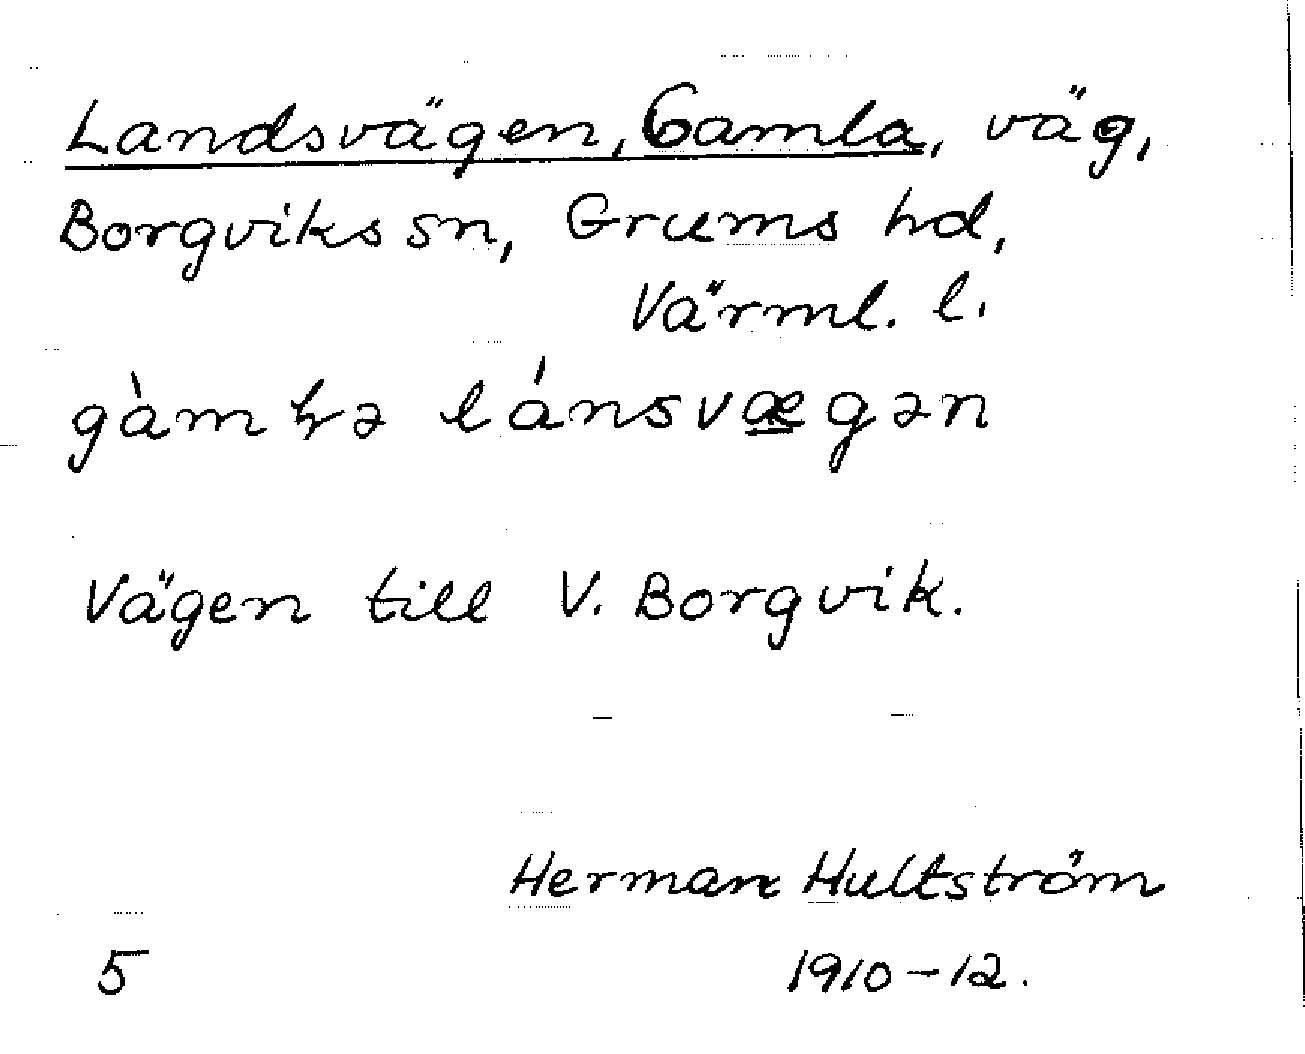 Landsvägen, Gamla, väg,
Borgviks sn, Grums hd,
Värml. l.
gàmɽə lánsvægən
Vägen till V. Borgvik.
Herman Hultström
5
1910-12.